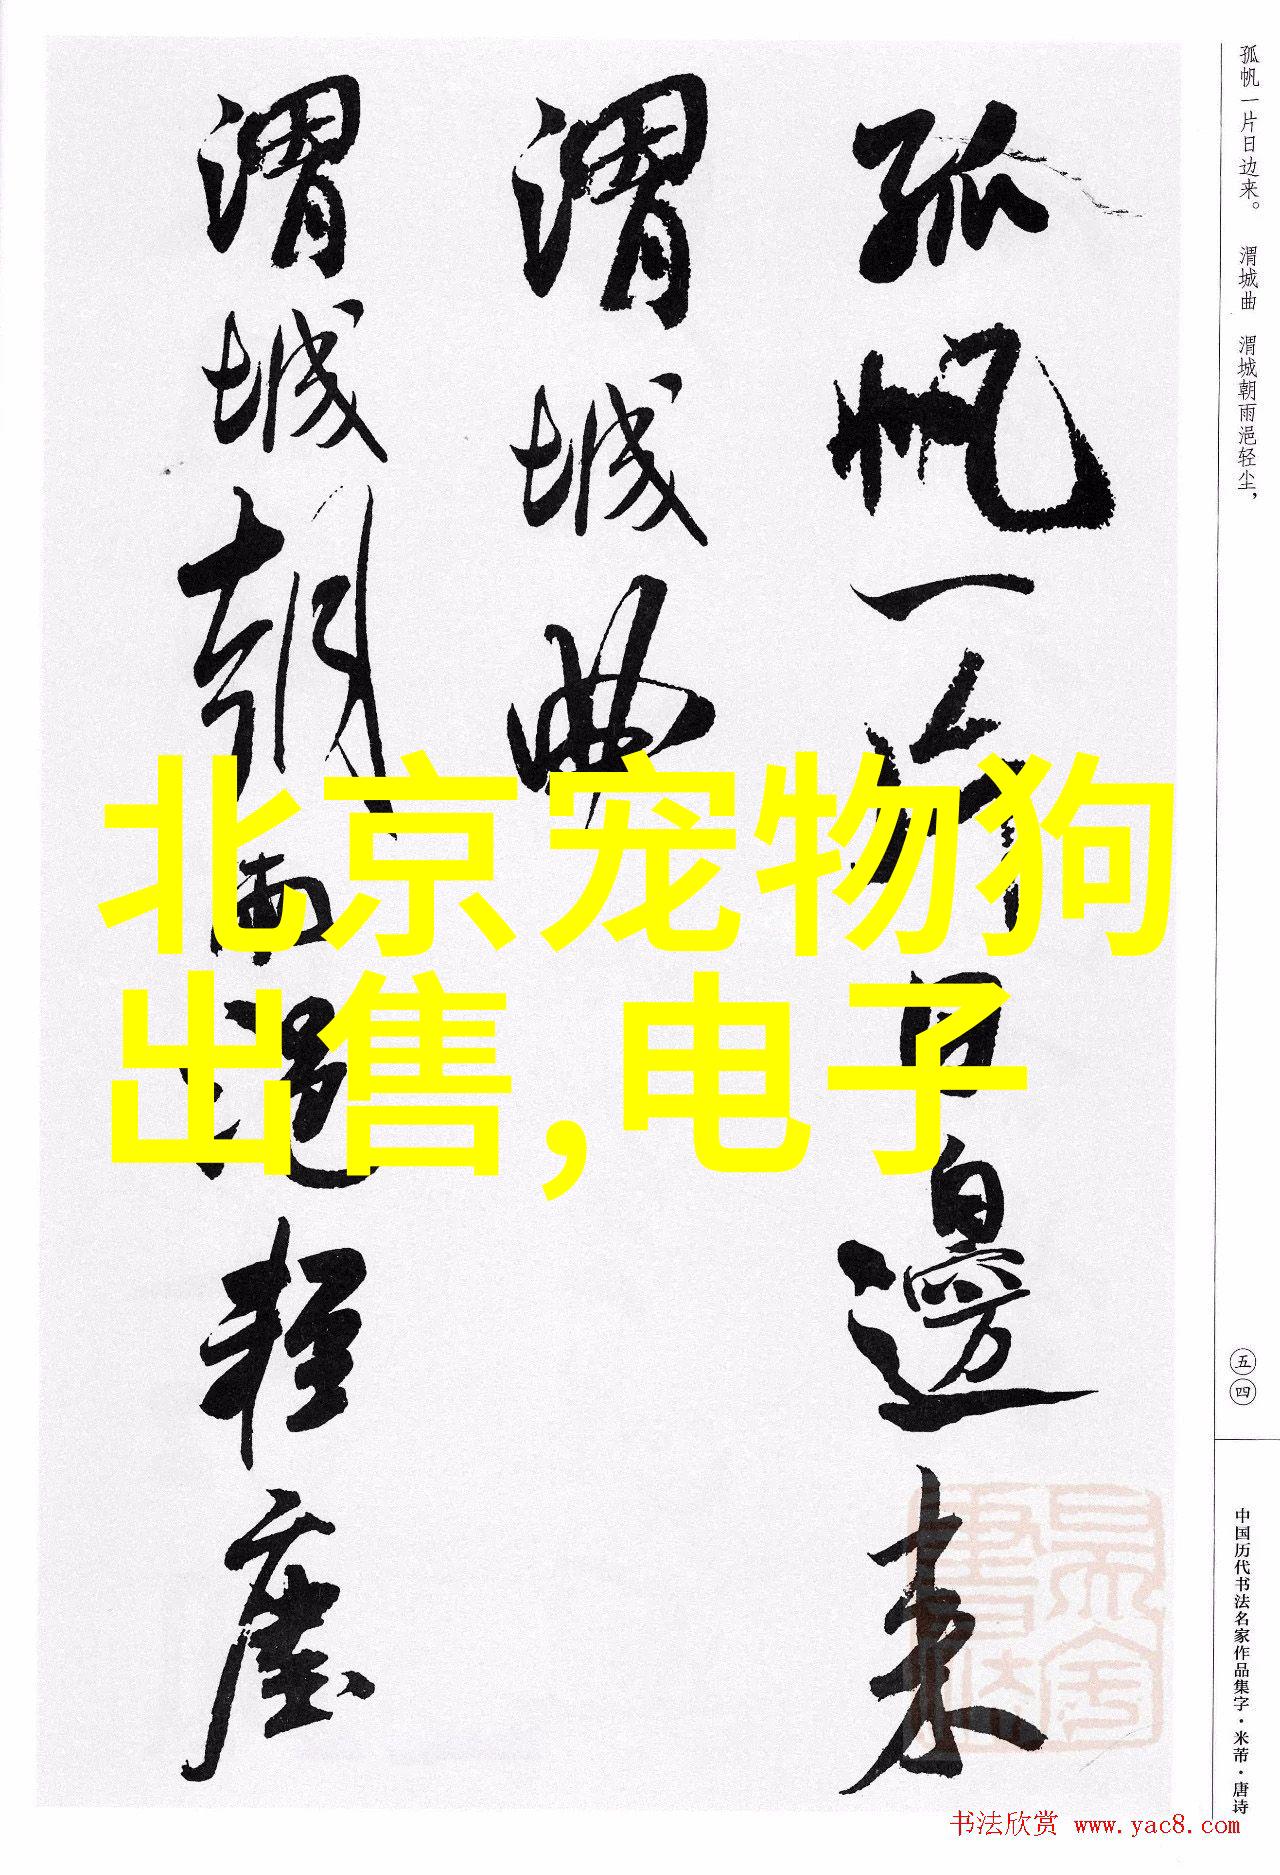 孤帆一片日邊来
渭城曲
渭城朝雨浥軽塵
孤帆一片日边来。 渭城曲 渭城朝雨浥轻尘，
五四
中国历代书法名家作品集字·米芾·唐诗
北京宠物狗
出售,电子
书法欣赏 www.yac8.com